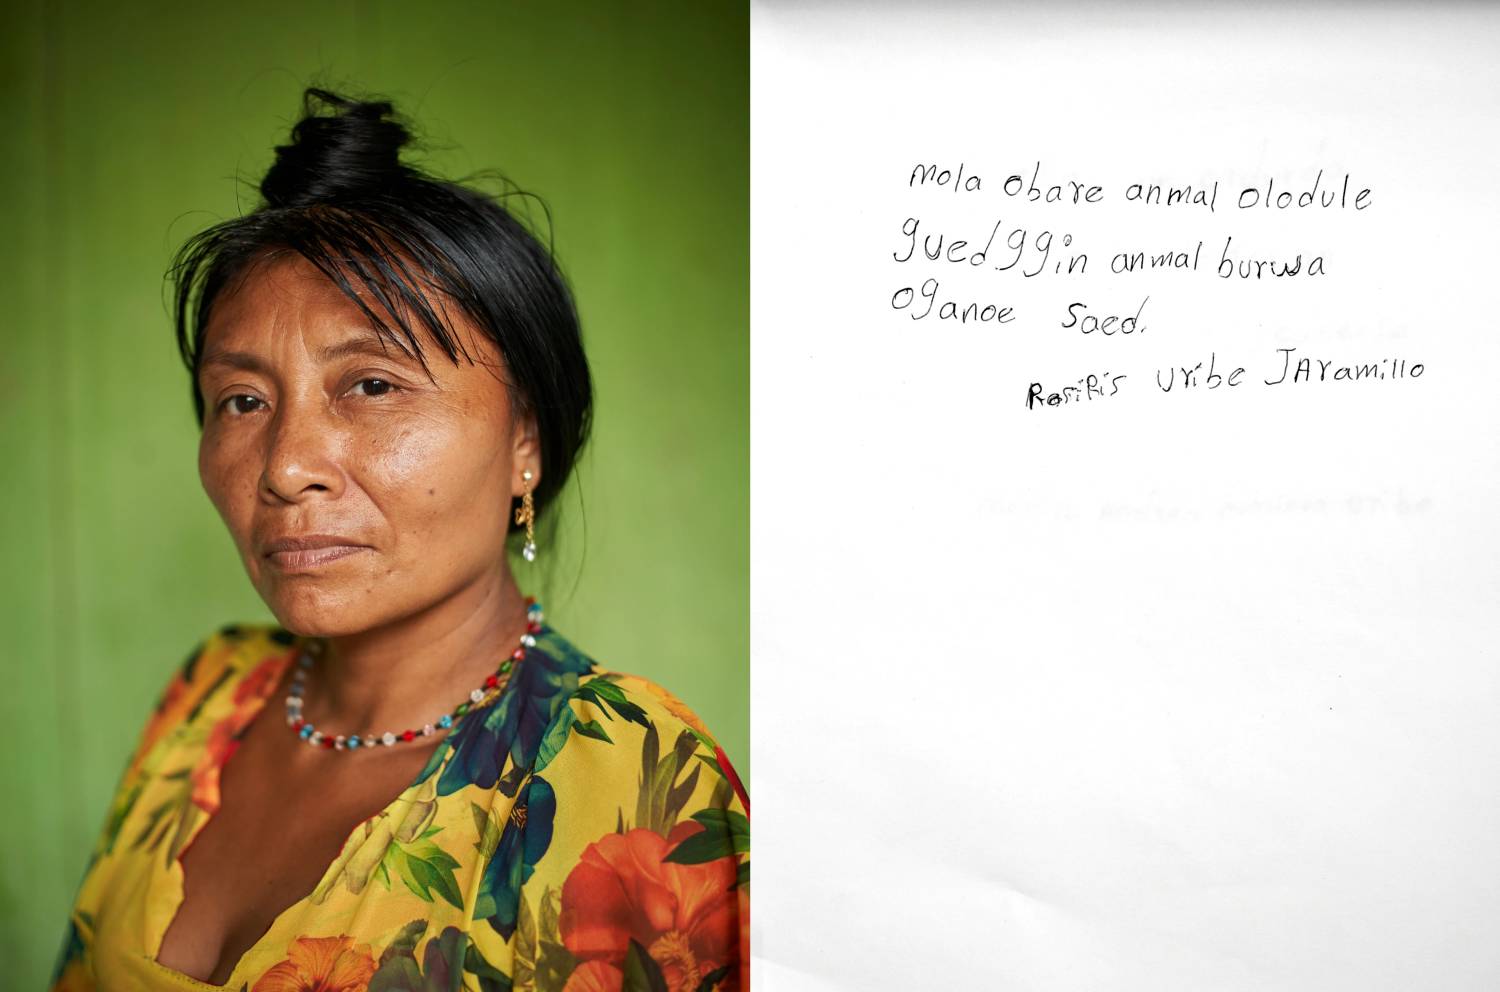 mola obare anmal olodule
guedggin anmal burwa
oganoe saed.
Uribe JAramillo